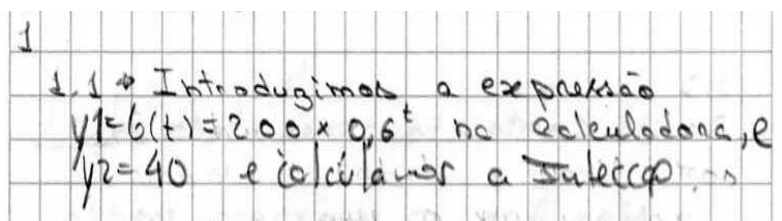 1
1.1 → Introduzimos a expressão
y1=b(t)=200×0,6^t na calculadora, e
y2=40 e calculamos a